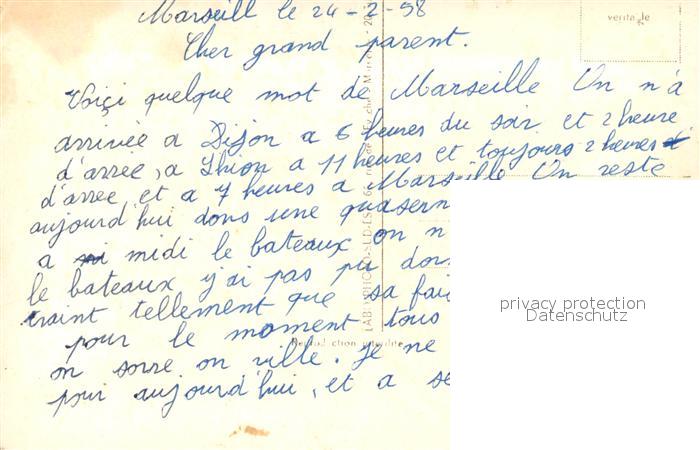 Marseill le 24-2-58
véritable
Cher grand parent.
Voiçi quelque mot de Marseille On n'a
arrivée a Dijon a 6 heures du soir et 2 heure
d'arrée, a 11 heures et toujours 2 heures
d'arree et a 7 heures a Marseille On reste
aujourd'hui dans une quasern
a midi le bateaux on n
le bateaux j'ai pas pu dor
traint tellement que sa fai
pour le moment tous
on sorre on ville. je ne
pour aujourd'hui, et a se
Reproduction interdite
privacy protection
Datenschutz